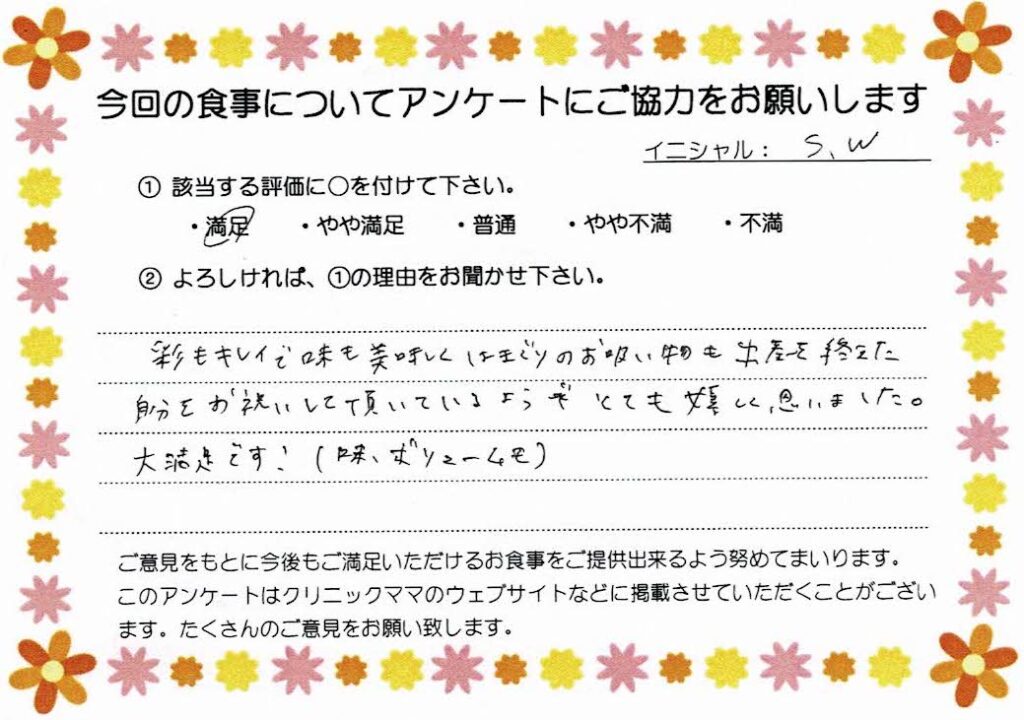 今回の食事についてアンケートにご協力をお願いします
イニシャル： S.W
① 該当する評価に○を付けて下さい。
・満足 ・やや満足 ・普通 ・やや不満 ・不満
② よろしければ、①の理由をお聞かせ下さい。
彩もキレイで味も美味しくはまぐりのお吸い物も出産を終えた
自分をお祝いして頂いているようでとても嬉しく思いました。
大満足です！（味、ボリュームも）
ご意見をもとに今後もご満足いただけるお食事をご提供出来るよう努めてまいります。
このアンケートはクリニックママのウェブサイトなどに掲載させていただくことがござい
ます。たくさんのご意見をお願い致します。